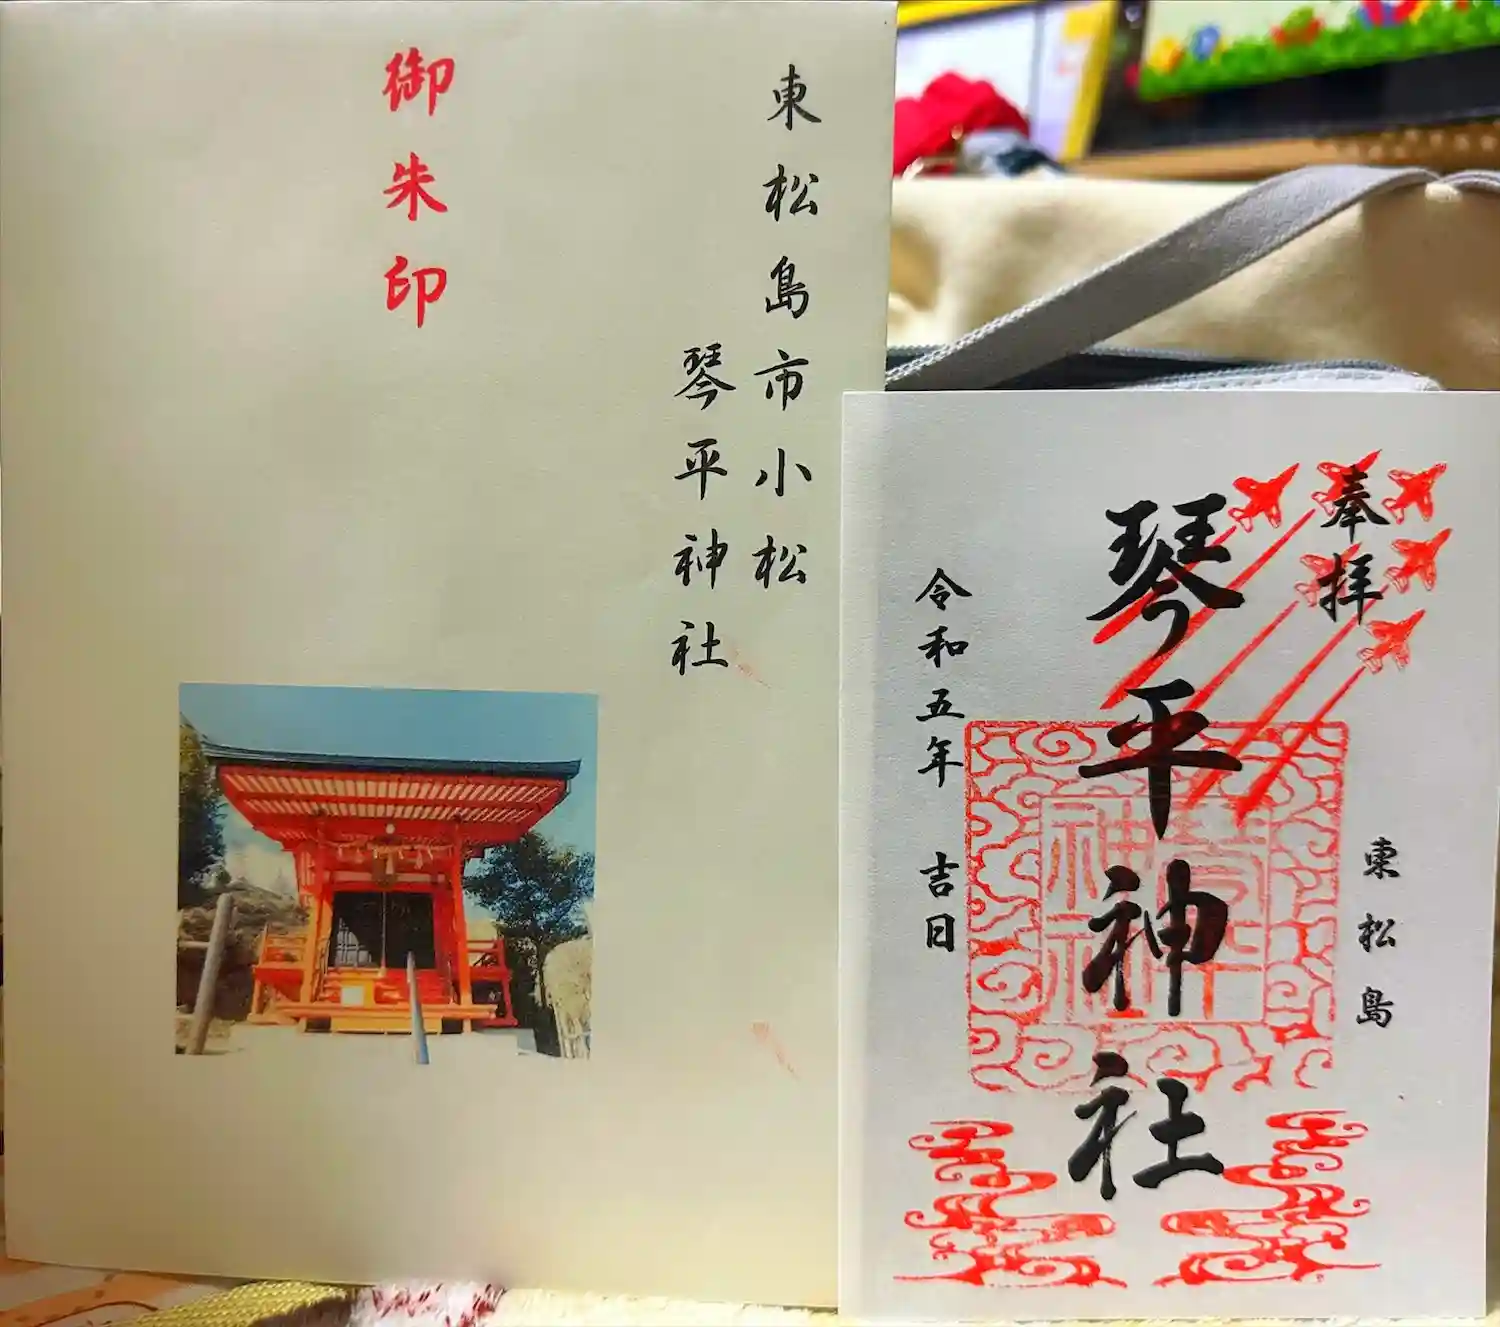 東松島市小松
琴平神社
御朱印
奉拝
東松島
琴平神社
令和五年 吉日